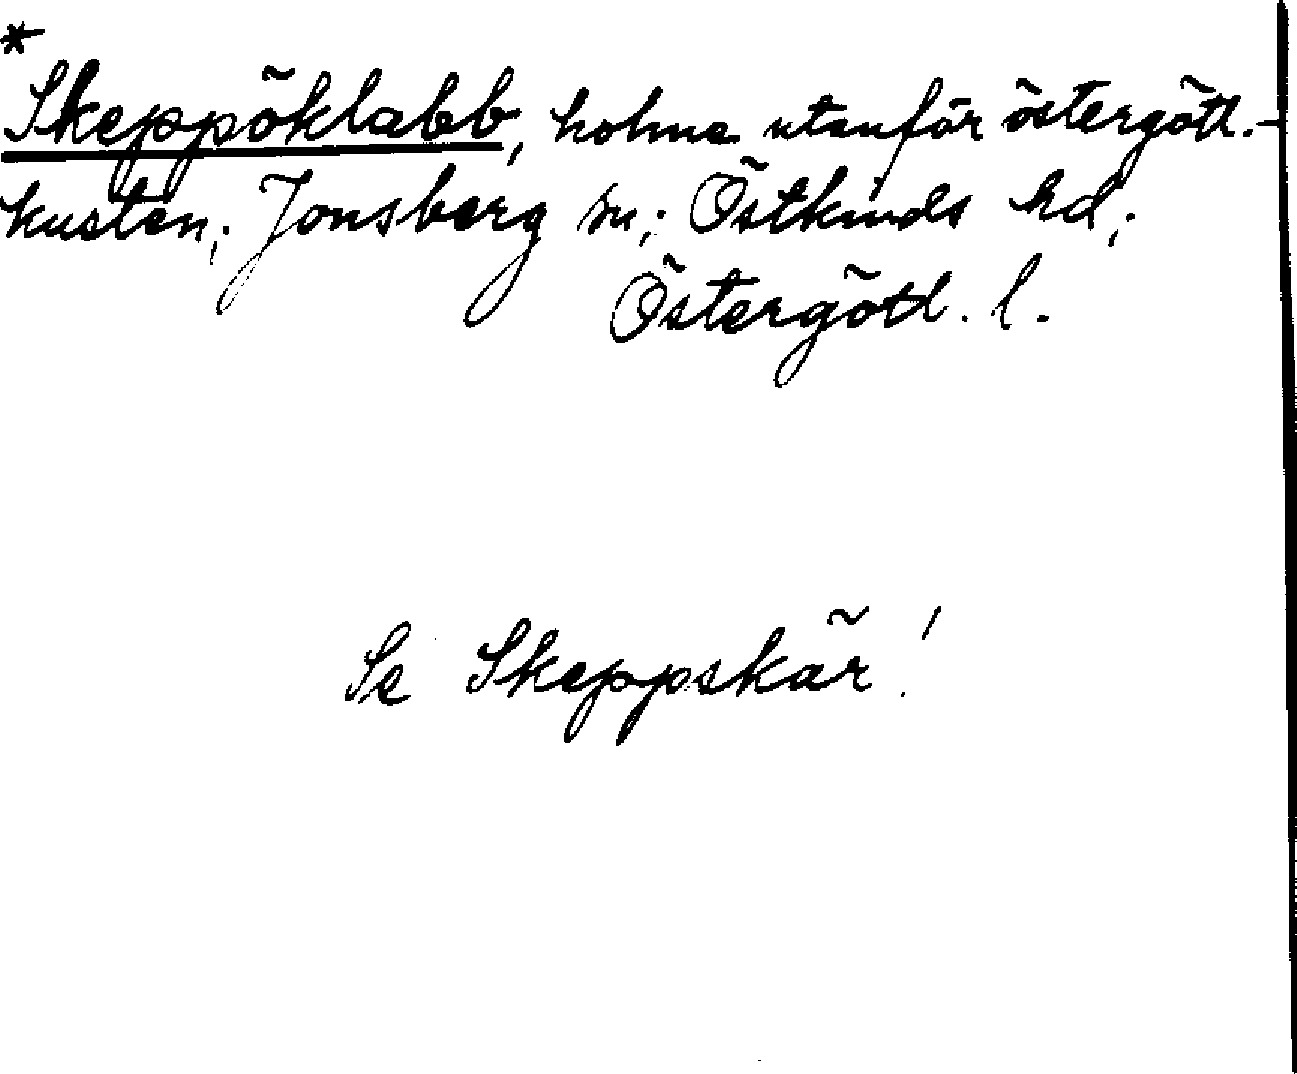 *
Skeppöklabb, holme utanför östergötl.-
kusten; Jonsberg sn; Östkinds hd;
Östergötl. l.
Se Skeppskär!